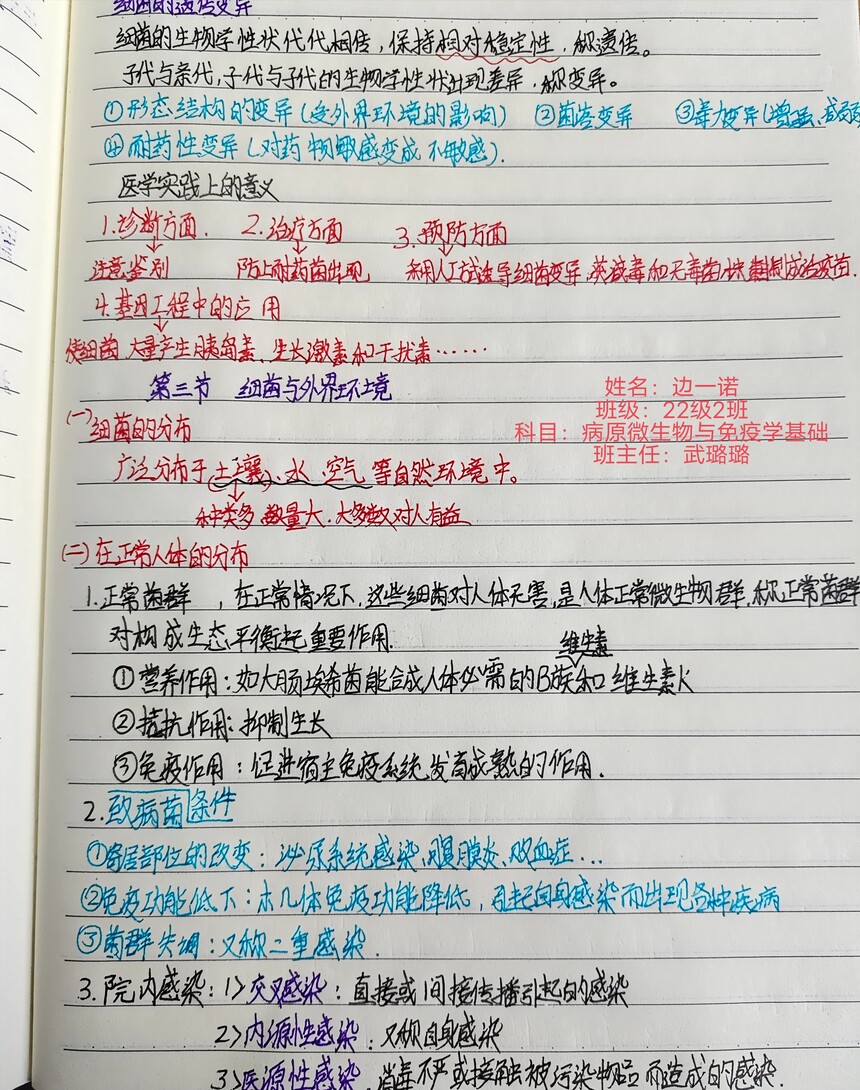 细菌的遗传变异
细菌的生物学性状代代相传，保持相对稳定性，称遗传。
子代与亲代，子代与子代的生物学性状出现差异，称变异。
①形态结构的变异（受外界环境的影响） ②菌落变异 ③毒力变异（增强、或减弱
④耐药性变异（对药物敏感变成不敏感）.
医学实践上的意义
1.诊断方面. 2.治疗方面 3.预防方面
注意鉴别 防止耐药菌出现 利用人工诱导细菌变异，获减毒和无毒菌株制成疫苗.
4.基因工程中的应用
使细菌大量产生胰岛素、生长激素和干扰素……
第三节 细菌与外界环境
姓名：边一诺
班级：22级2班
科目：病原微生物与免疫学基础
班主任：武璐璐
(一)细菌的分布
广泛分布于土壤、水、空气等自然环境中。
种类多 数量大.大多数对人有益
(二)在正常人体的分布
1.正常菌群，在正常情况下，这些细菌对人体无害，是人体正常微生物群，称正常菌群
对构成生态平衡起重要作用.
维生素
①营养作用：如大肠埃希菌能合成人体必需的B族和维生素K
②拮抗作用：抑制生长
③免疫作用：促进宿主免疫系统发育成熟的作用.
2.致病菌条件
①寄居部位的改变：泌尿系统感染，腹膜炎、败血症...
②免疫功能低下：机体免疫功能降低，引起自身感染而出现各种疾病
③菌群失调：又称二重感染.
3.院内感染：1>交叉感染：直接或间接传播引起的感染
2>内源性感染：又称自身感染
3>医源性感染：消毒不严或接触被污染物品而造成的感染